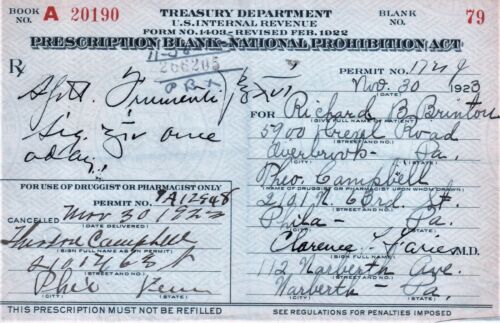 BOOK NO. A 20190
TREASURY DEPARTMENT
U.S. INTERNAL REVENUE
FORM NO. 1403-REVISED FEB. 1922
BLANK NO. 79
PRESCRIPTION BLANK-NATIONAL PROHIBITION ACT
266205
Rx
PERMIT NO. 1749
Nov. 30 1923
(DATE)
Spts. Frumenti
Sig.
a day.
FOR Richard B. Brinton
(GIVE FULL NAME OF PATIENT)
5900 Road
(STREET AND NO.)
Overbrook Pa.
(CITY) (STATE)
Theo. Campbell
(NAME OF DRUGGIST OR PHARMACIST UPON WHOM DRAWN)
2101 N. 63rd St.
(STREET AND NO.)
Phila Pa.
(CITY) (STATE)
Clarence Faries M.D.
(SIGN FULL NAME)
112 Narberth Ave.
(STREET AND NO.)
Narberth Pa.
(CITY) (STATE)
FOR USE OF DRUGGIST OR PHARMACIST ONLY
PERMIT NO.
CANCELLED Nov 30 192
(DATE DELIVERED)
Theodore Campbell
(SIGN FULL NAME AS ON PERMIT)
2101 N 63 St
(STREET AND NO.)
Phil Penn
(CITY) (STATE)
THIS PRESCRIPTION MUST NOT BE REFILLED
SEE REGULATIONS FOR PENALTIES IMPOSED